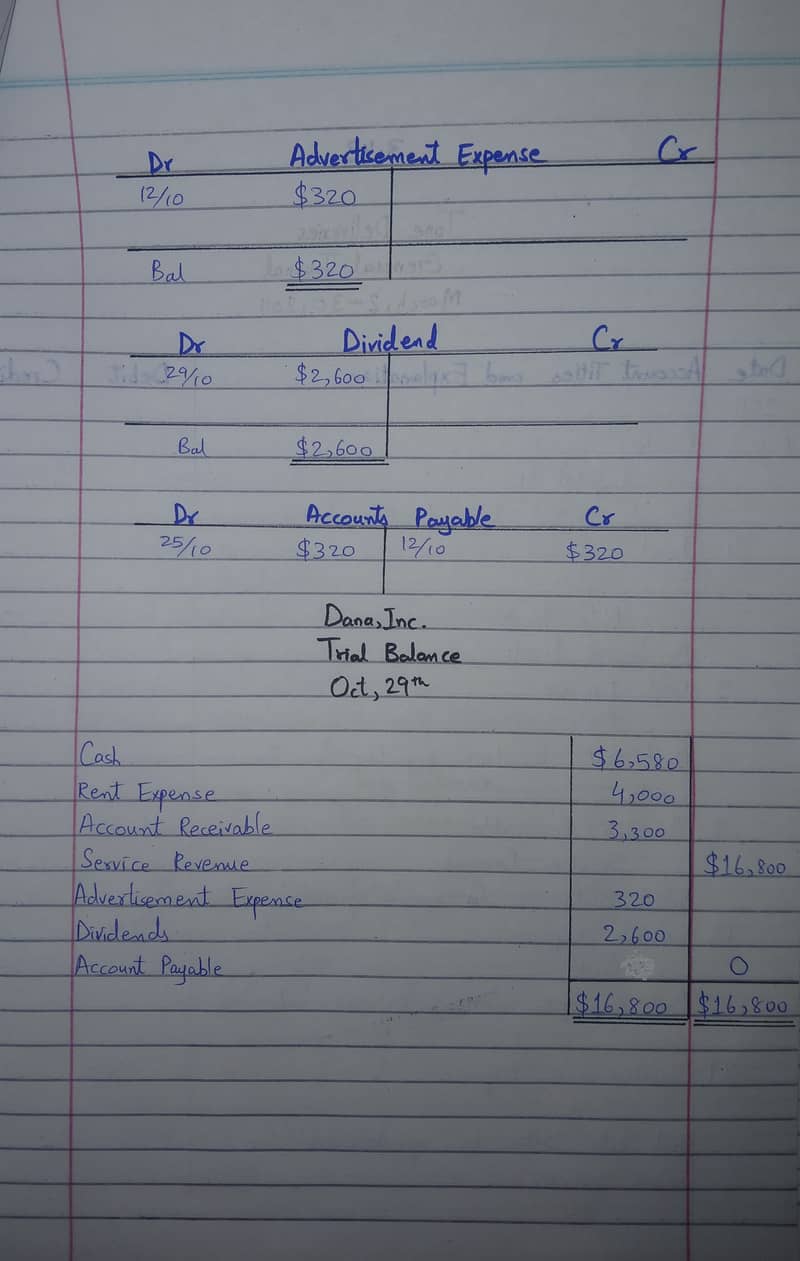 Dr Advertisement Expense Cr
12/10 $320
Bal $320
Dr Dividend Cr
29/10 $2,600
Bal $2,600
Dr Accounts Payable Cr
25/10 $320 12/10 $320
Dana, Inc.
Trial Balance
Oct, 29th
Cash $6,580
Rent Expense 4,000
Account Receivable 3,300
Service Revenue $16,800
Advertisement Expense 320
Dividends 2,600
Account Payable 0
$16,800 $16,800